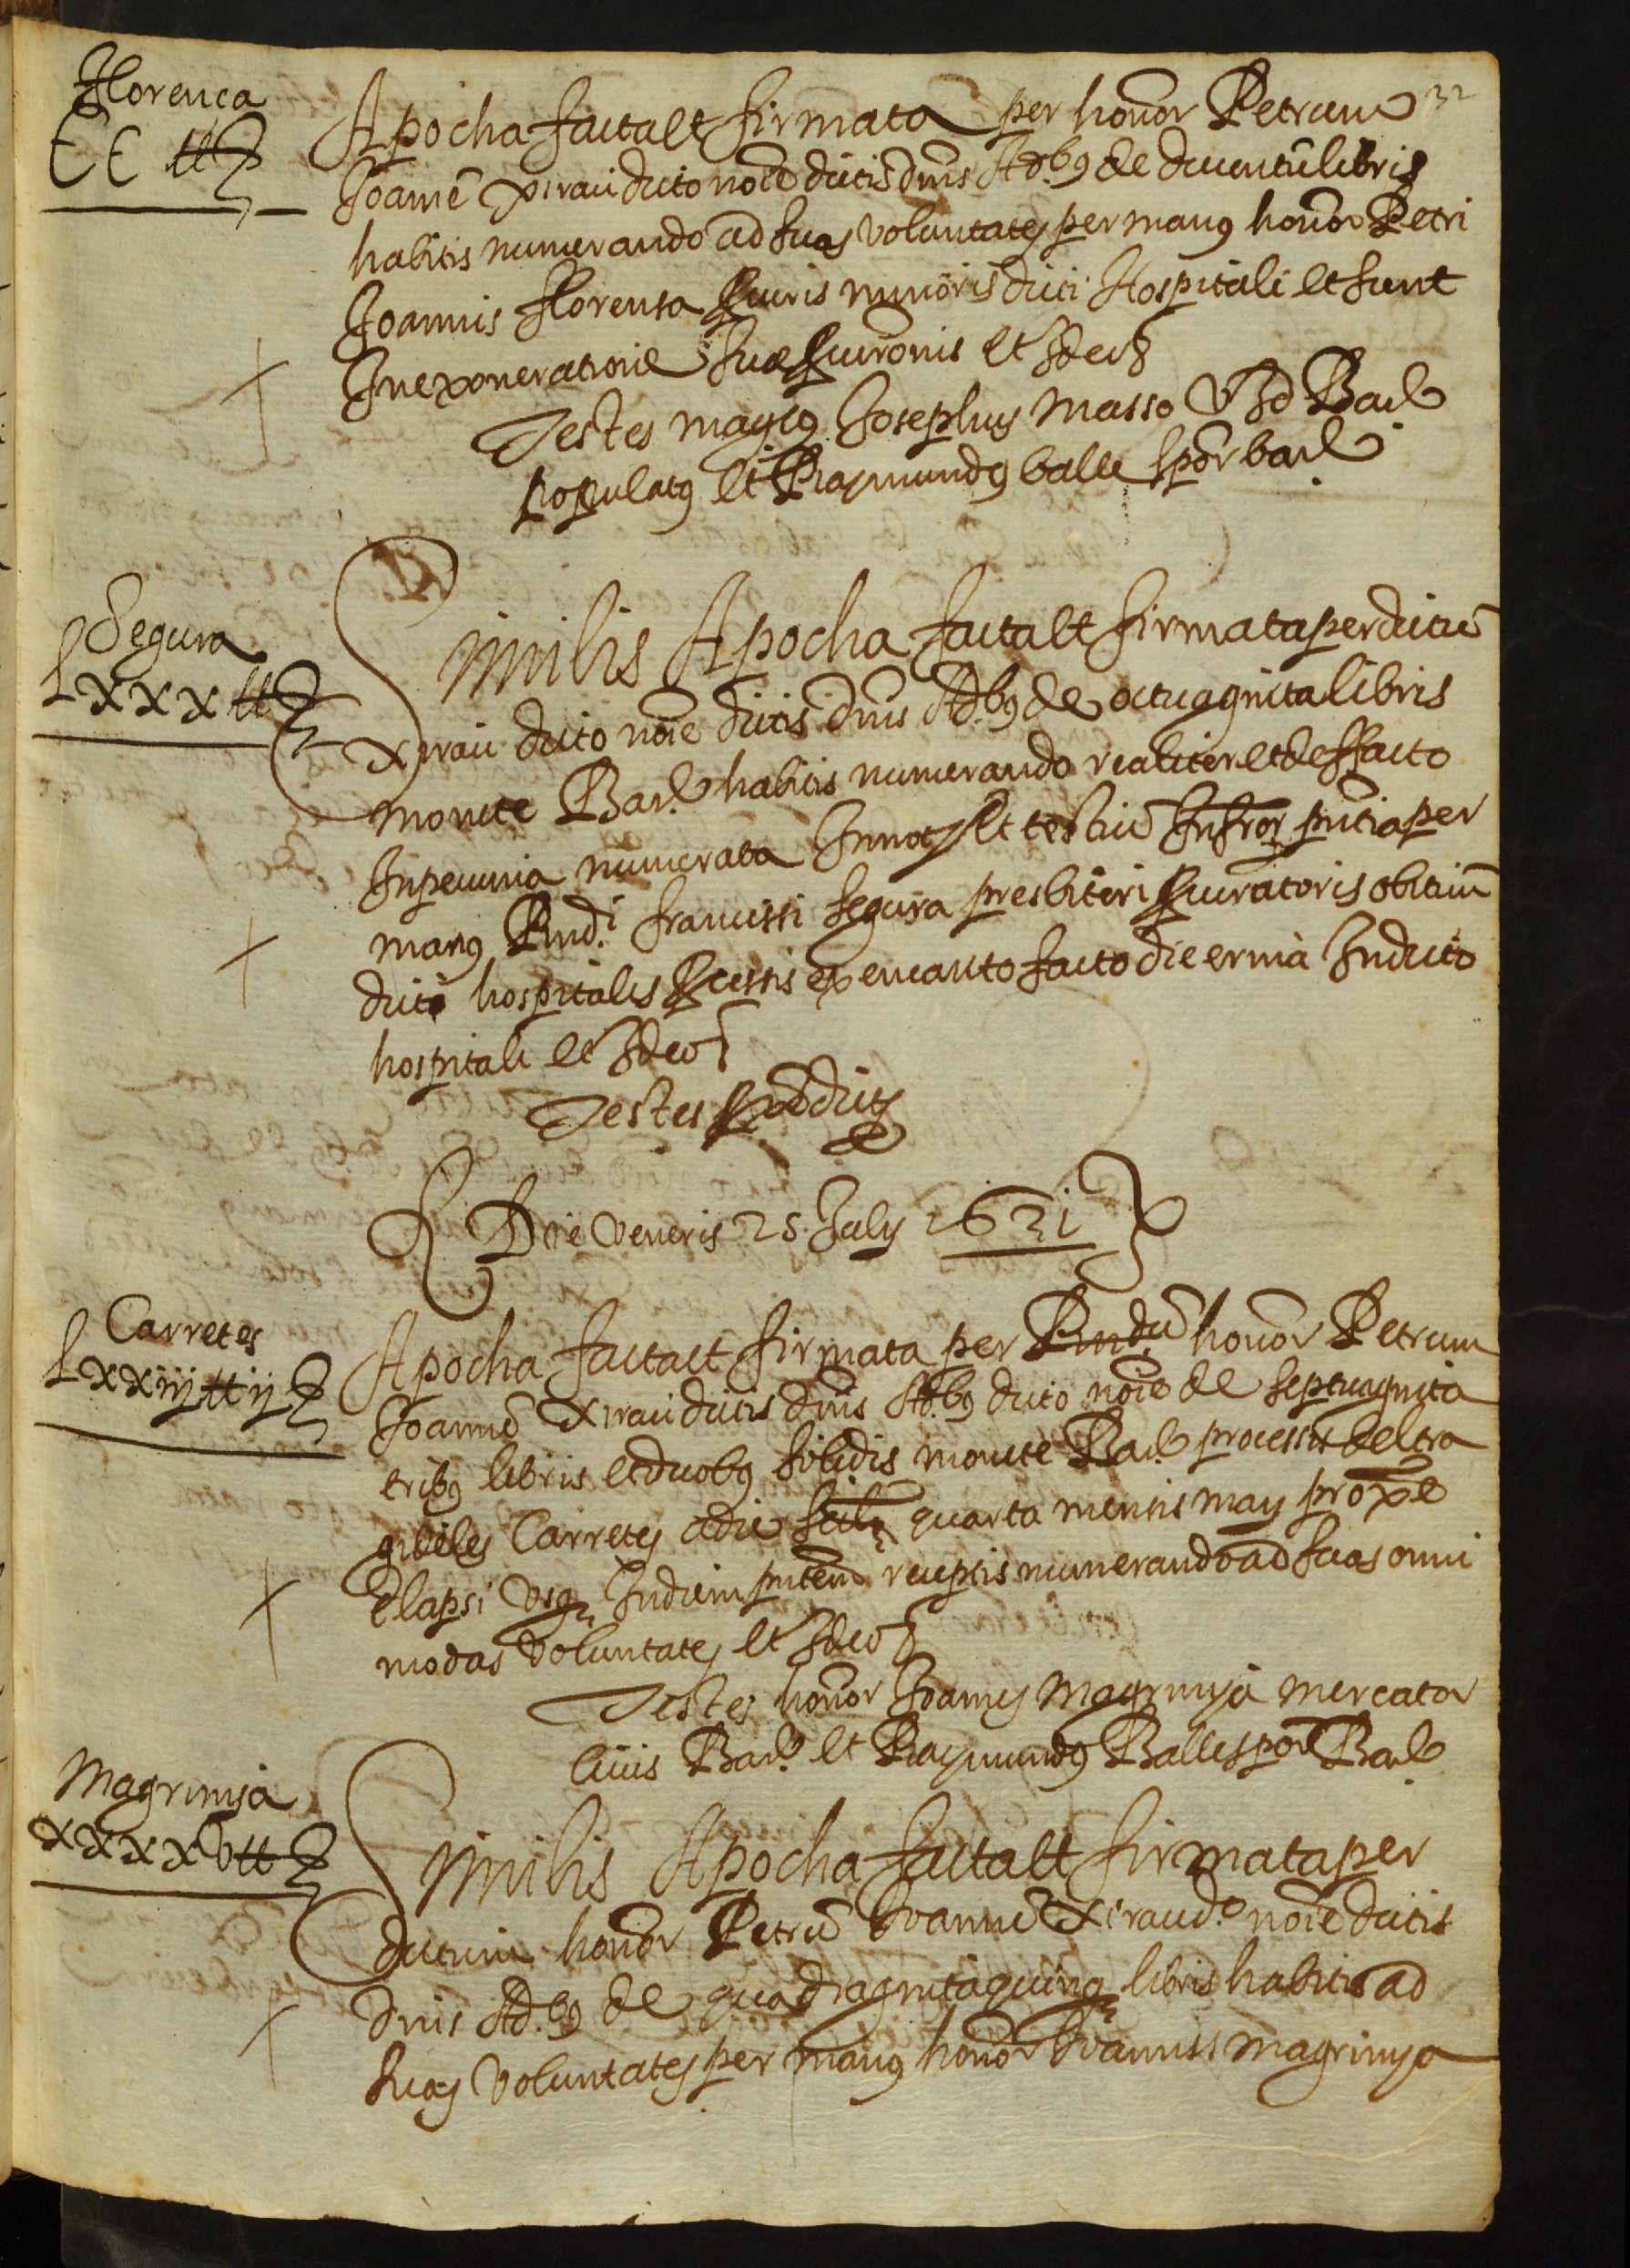 Florença
CC ll
32
Apocha facta et firmata per honor Petrum
Joanne Xirau dicto noie dictis dnis Ad.bus de ducentu libris
habitis numerando ad suas voluntates per manus honor Petri
Joannis Florensa curis minoris dicti Hospitali et sunt
In exoneratione sue curonis et Ideo &
Testes magcus Josephus Masso V Jd Bar.e
populatus et Raymundus balle spor bar.e
Segura
Lxxx ll
Similis Apocha facta et firmata per dictu
Xirau dicto noie dictis dnis Ad.bus de octuaginta libris
monete Bar.e habitis numerando realiter et de facto
In pecunia numerata In mot et testiu Infror pntia per
manus Rnd.i francissi segura presbiteri procuratoris obituu
dicti hospitalis processis ex encanto facto die erina In dicto
hospitali et Ideo &
Testes predicti
Die Veneris 25 July 1631
Carretes
Lxxiij ll ij
Apocha facta et firmata per Rndu honor Petrum
Joanne Xirau dictis dnis Ad.bus dicto noie de septuaginta
tribus libris et duobus solidis monete Bar.e processis del tra
gi de les Carretes a die quarta mensis may prope
elapsi usq In diem pntem receptis numerando ad suas omni
modas voluntates et Ideo &
Testes honor Joannes Magrinya mercator
Civis Bar.e et Raymundus Balle spor Bar.e
Magrinya
xxxxv ll
Similis Apocha facta et firmata per
dictum honor Petru Joanne Xirau d.o noie dictis
dnis Ad.bus de quadraginta quinq libris habitis ad
suas voluntates per manus honor Joannis Magrinya